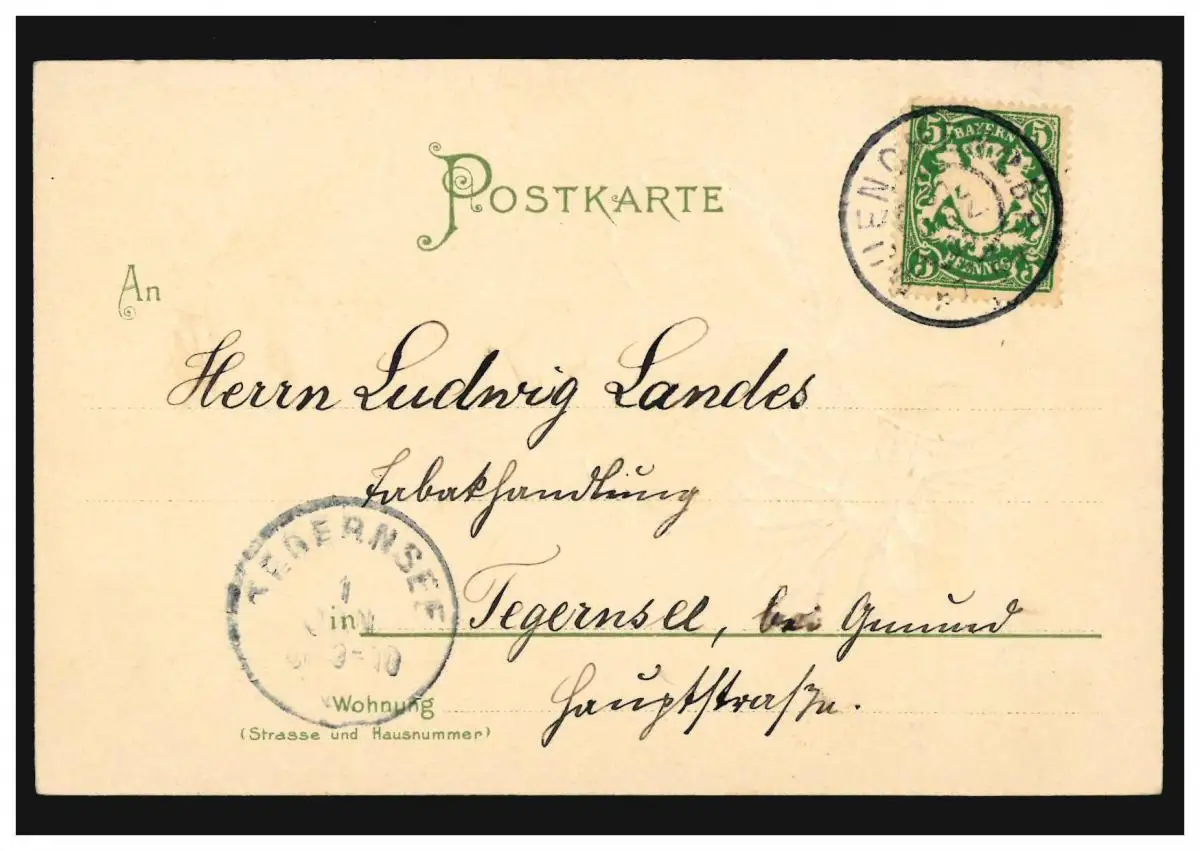 POSTKARTE
5 BAYERN 5
5 PFENNIG 5
An
Herrn Ludwig Landes
Tabakhandlung
TEGERNSEE
1
9-10
in Tegernsee, bei Gmund
Wohnung Hauptstraße.
(Strasse und Hausnummer)